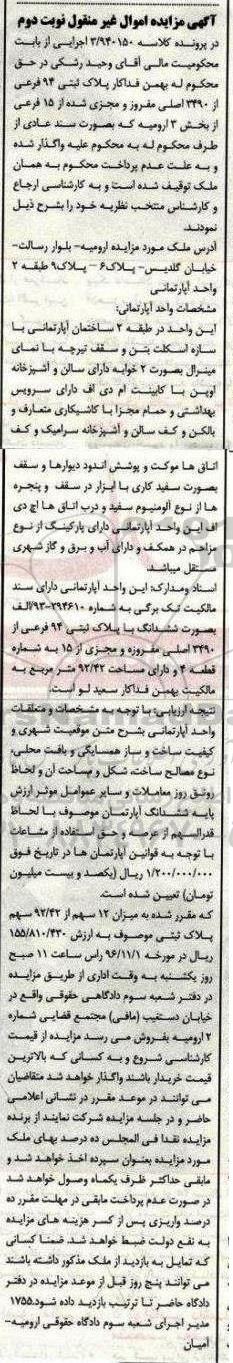 آگهی مزایده اموال غیر منقول نوبت دوم
در پرونده کلاسه ۳/۹۴۰۱۵۰ اجرایی از بابت
محکومیت مالی آقای وحید رشکی در حق
محکوم له بهمن فداکار پلاک ثبتی ۹۴ فرعی
از ۳۴۹۰ اصلی مفروز و مجزی شده از ۱۵ فرعی
از بخش ۳ ارومیه که بصورت سند عادی از
طرف محکوم له به محکوم علیه واگذار شده
و به علت عدم پرداخت محکوم به همان
ملک توقیف شده است و به کارشناسی ارجاع
و کارشناس منتخب نظریه خود را بشرح ذیل
نمودند.
آدرس ملک مورد مزایده ارومیه- بلوار رسالت-
خیابان گلدیس- پلاک۶ – پلاک۹ طبقه ۲
واحد آپارتمانی
مشخصات واحد آپارتمانی:
این واحد در طبقه ۲ ساختمان آپارتمانی با
سازه اسکلت بتن و سقف تیرچه با نمای
مینرال بصورت ۲ خوابه دارای سالن و آشپزخانه
اوپن با کابینت ام دی اف دارای سرویس
بهداشتی و حمام مجزا با کاشیکاری متعارف و
بالکن و کف سالن و آشپزخانه سرامیک و کف
اتاق ها موکت و پوشش اندود دیوارها و سقف
بصورت سفید کاری با ابزار در سقف و پنجره
ها از نوع آلومنیوم سفید و درب اتاق ها اچ دی
اف این واحد آپارتمانی دارای پارکینگ از نوع
مزاحم در همکف و دارای آب و برق و گاز شهری
مستقل میباشد.
اسناد ومدارک: این واحد آپارتمانی دارای سند
مالکیت تک برگی به شماره ۳۹۴۶۱۰-۹۳/الف
بصورت ششدانگ با پلاک ثبتی ۹۴ فرعی از
۳۴۹۰ اصلی مفروزه و مجزی از ۱۵ به شماره
قطعه ۴ و دارای مساحت ۹۲/۴۲ متر مربع به
مالکیت بهمن فداکار سعید لو است.
نتیجه ارزیابی: با توجه به مشخصات و متعلقات
واحد آپارتمانی بشرح متن موقعیت شهری و
کیفیت ساخت و ساز همسایگی و بافت محلی،
نوع مصالح ساخت، شکل و مساحت آن و لحاظ
رونق روز معاملات و سایر عموامل موثر ارزش
پایه ششدانگ آپارتمان موصوف با لحاظ
قدرالسهم از عرصه و حق استفاده از مشاعات
با توجه به قوانین آپارتمان ها در تاریخ فوق
۱/۲۰۰/۰۰۰/۰۰۰ ریال (یکصد و بیست میلیون
تومان) تعیین شده است.
که مقرر شده به میزان ۱۲ سهم از ۹۲/۴۲ سهم
پلاک ثبتی موصوف به ارزش ۱۵۵/۸۱۰/۴۳۰
ریال در مورخه ۹۶/۱۱/۱ راس ساعت ۱۱ صبح
روز یکشنبه به وقت اداری از طریق مزایده
در دفتر شعبه سوم دادگاهی حقوقی واقع در
خیابان دستغیب (مافی) مجتمع قضایی شماره
۲ ارومیه بفروش می رسد مزایده از قیمت
کارشناسی شروع و به کسانی که بالاترین
قیمت خریدار باشند واگذار خواهد شد متقاضیان
می توانند در موعد مقرر در نشانی اعلامی
حاضر و در جلسه مزایده شرکت نمایند از برنده
مزایده نقدا فی المجلس ده درصد بهای ملک
مورد مزایده بعنوان سپرده اخذ خواهد شد و
مابقی حداکثر ظرف یکماه وصول خواهد شد
در صورت عدم پرداخت مابقی در مهلت مقرر ده
درصد واریزی پس از کسر هزینه های مزایده
به نفع دولت ضبط خواهد شد. ضمنا کسانی
که تمایل به بازدید از ملک مذکور داشته باشند
می توانند پنج روز قبل از موعد مزایده در دفتر
دادگاه حاضر تا ترتیب بازدید داده شود.۱۷۵۵
مدیر اجرای شعبه سوم دادگاه حقوقی ارومیه-
آمیان